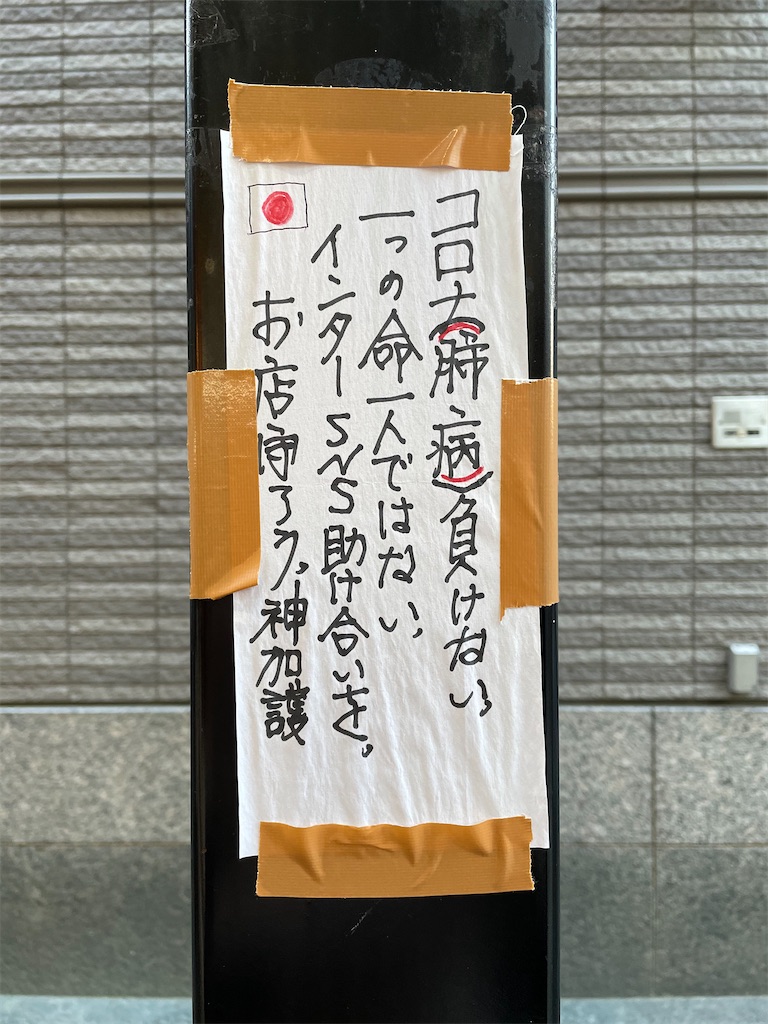 コロナ(肺、病)負けない、
一つの命一人ではない、
インターSNS助け合いを。
お店守ろう、神加護